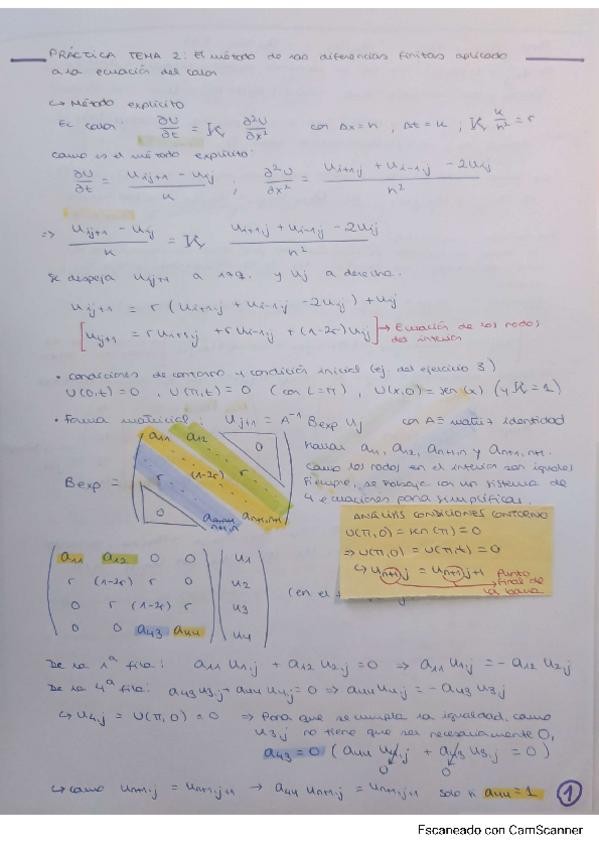 PRÁCTICA TEMA 2: El método de las diferencias finitas aplicado
a la ecuación del calor
↳ Método explícito
Ec calor: ∂U/∂t = K ∂²U/∂x² con Δx = h, Δt = k ; K k/h² = r
Como es el método explícito:
∂U/∂t = (u_ij+1 − u_ij)/k ; ∂²U/∂x² = (u_i+1,j + u_i−1,j − 2u_ij)/h²
⇒ (u_ij+1 − u_ij)/k = K (u_i+1,j + u_i−1,j − 2u_ij)/h²
Se despeja u_ij+1 a izq. y u_j a derecha.
u_ij+1 = r (u_i+1,j + u_i−1,j − 2u_ij) + u_ij
[u_ij+1 = r u_i+1,j + r u_i−1,j + (1−2r) u_ij] → Ecuación de los nodos
del interior
• Condiciones de contorno y condición inicial (ej. del ejercicio 3)
U(0,t) = 0 , U(π,t) = 0 (con L=π) , U(x,0) = sen(x) (y K = 1)
• Forma matricial: U_j+1 = A⁻¹ Bexp U_j con A ≡ matriz identidad
Bexp =
a11 a12 0
r (1−2r) r
0 a_n+1,n a_n+1,n+1
Hallar a11, a12, a_n+1,n y a_n+1,n+1.
Como los nodos en el interior son iguales
siempre, se trabaja con un sistema de
4 ecuaciones para simplificar.
ANÁLISIS CONDICIONES CONTORNO
U(π,0) = sen(π) = 0
⇒ U(π,0) = U(π,t) = 0
↳ u_n+1,j = u_n+1,j+1
Punto
final de
la barra
a11 a12 0 0 u1
r (1−2r) r 0 u2
0 r (1−2r) r u3
0 0 a43 a44 u4
(en el
De la 1ª fila: a11 u1,j + a12 u2,j = 0 ⇒ a11 u1,j = −a12 u2,j
De la 4ª fila: a43 u3,j + a44 u4,j = 0 ⇒ a44 u4,j = −a43 u3,j
↳ u4,j = U(π,0) = 0 ⇒ Para que se cumpla la igualdad, como
u3,j no tiene que ser necesariamente 0,
a43 = 0 (a44 u4,j + a43 u3,j = 0)
0 0
↳ como u_n+1,j = u_n+1,j+1 → a44 u_n+1,j = u_n+1,j+1 solo si a44 = 1
1
Escaneado con CamScanner